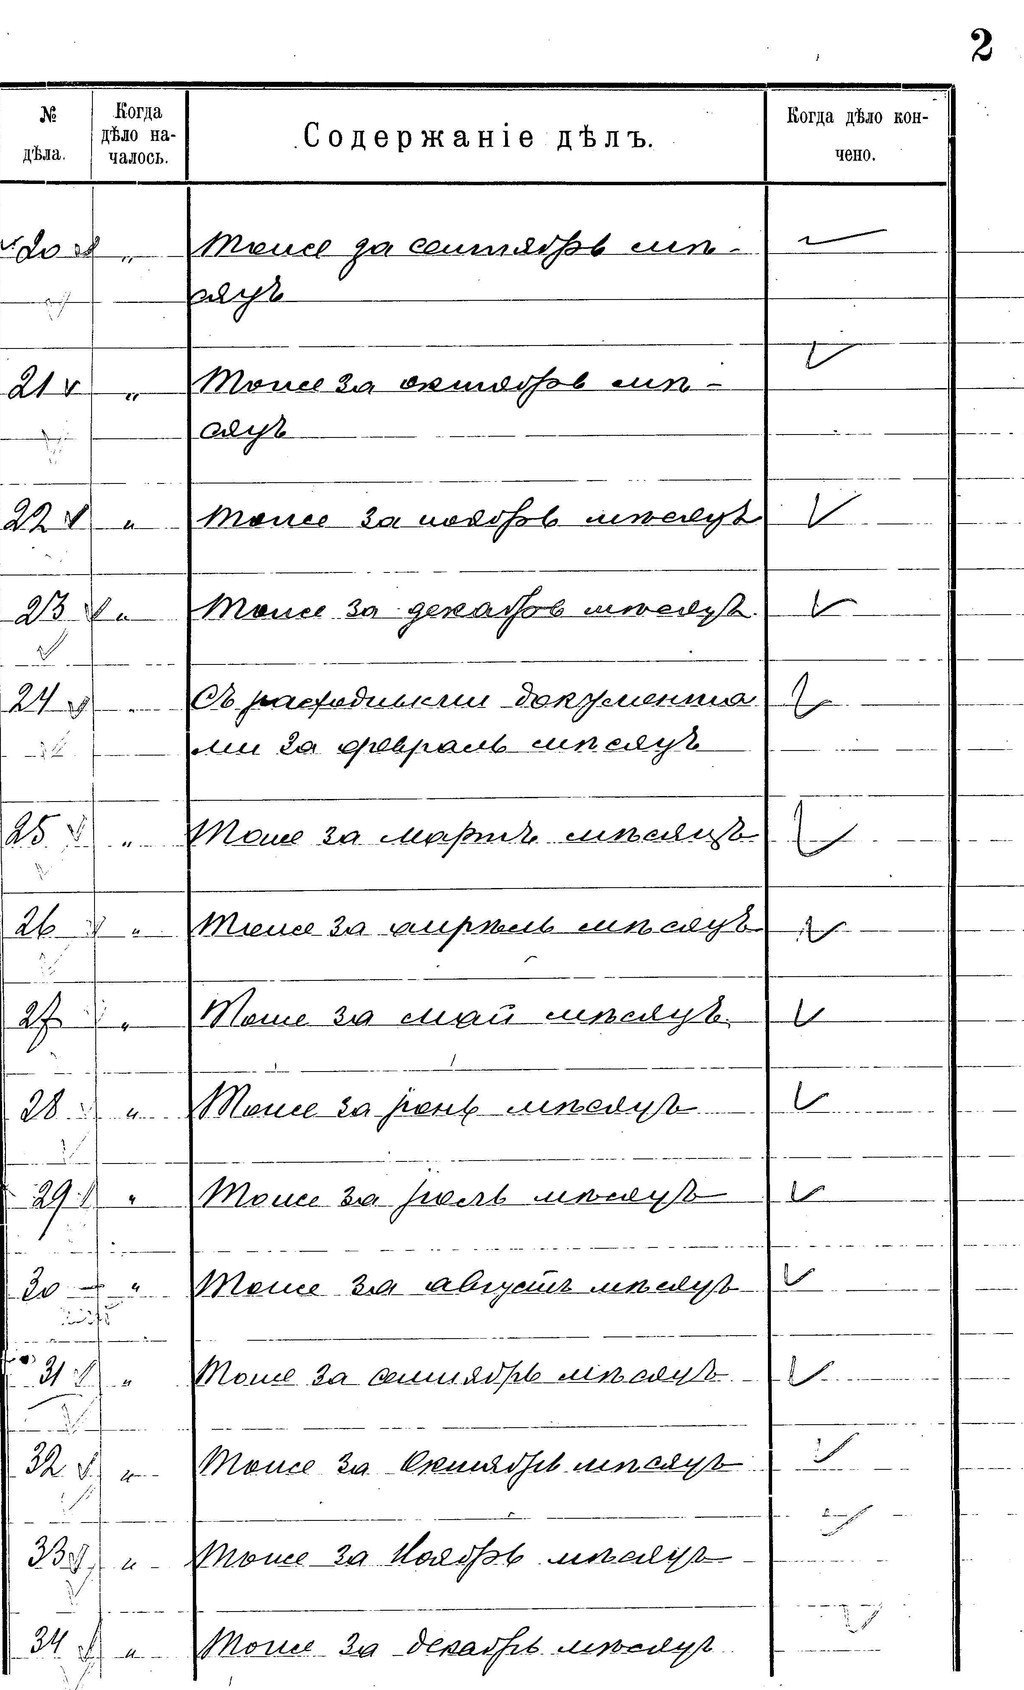 2
№ дѣла.
Когда дѣло на-
чалось.
Содержаніе дѣлъ.
Когда дѣло кон-
чено.
20 „ Тоже за сентябрь мѣ-
сяцъ
21 „ Тоже за октябрь мѣ-
сяцъ
22 „ Тоже за ноябрь мѣсяцъ
23 „ Тоже за декабрь мѣсяцъ
24 „ Съ расходными документа
ми за февраль мѣсяцъ
25 „ Тоже за мартъ мѣсяцъ
26 „ Тоже за апрѣль мѣсяцъ
27 „ Тоже за май мѣсяцъ
28 „ Тоже за іюнь мѣсяцъ
29 „ Тоже за іюль мѣсяцъ
30 „ Тоже за августъ мѣсяцъ
31 „ Тоже за сентябрь мѣсяцъ
32 „ Тоже за Октябрь мѣсяцъ
33 „ Тоже за Ноябрь мѣсяцъ
34 „ Тоже за декабрь мѣсяцъ